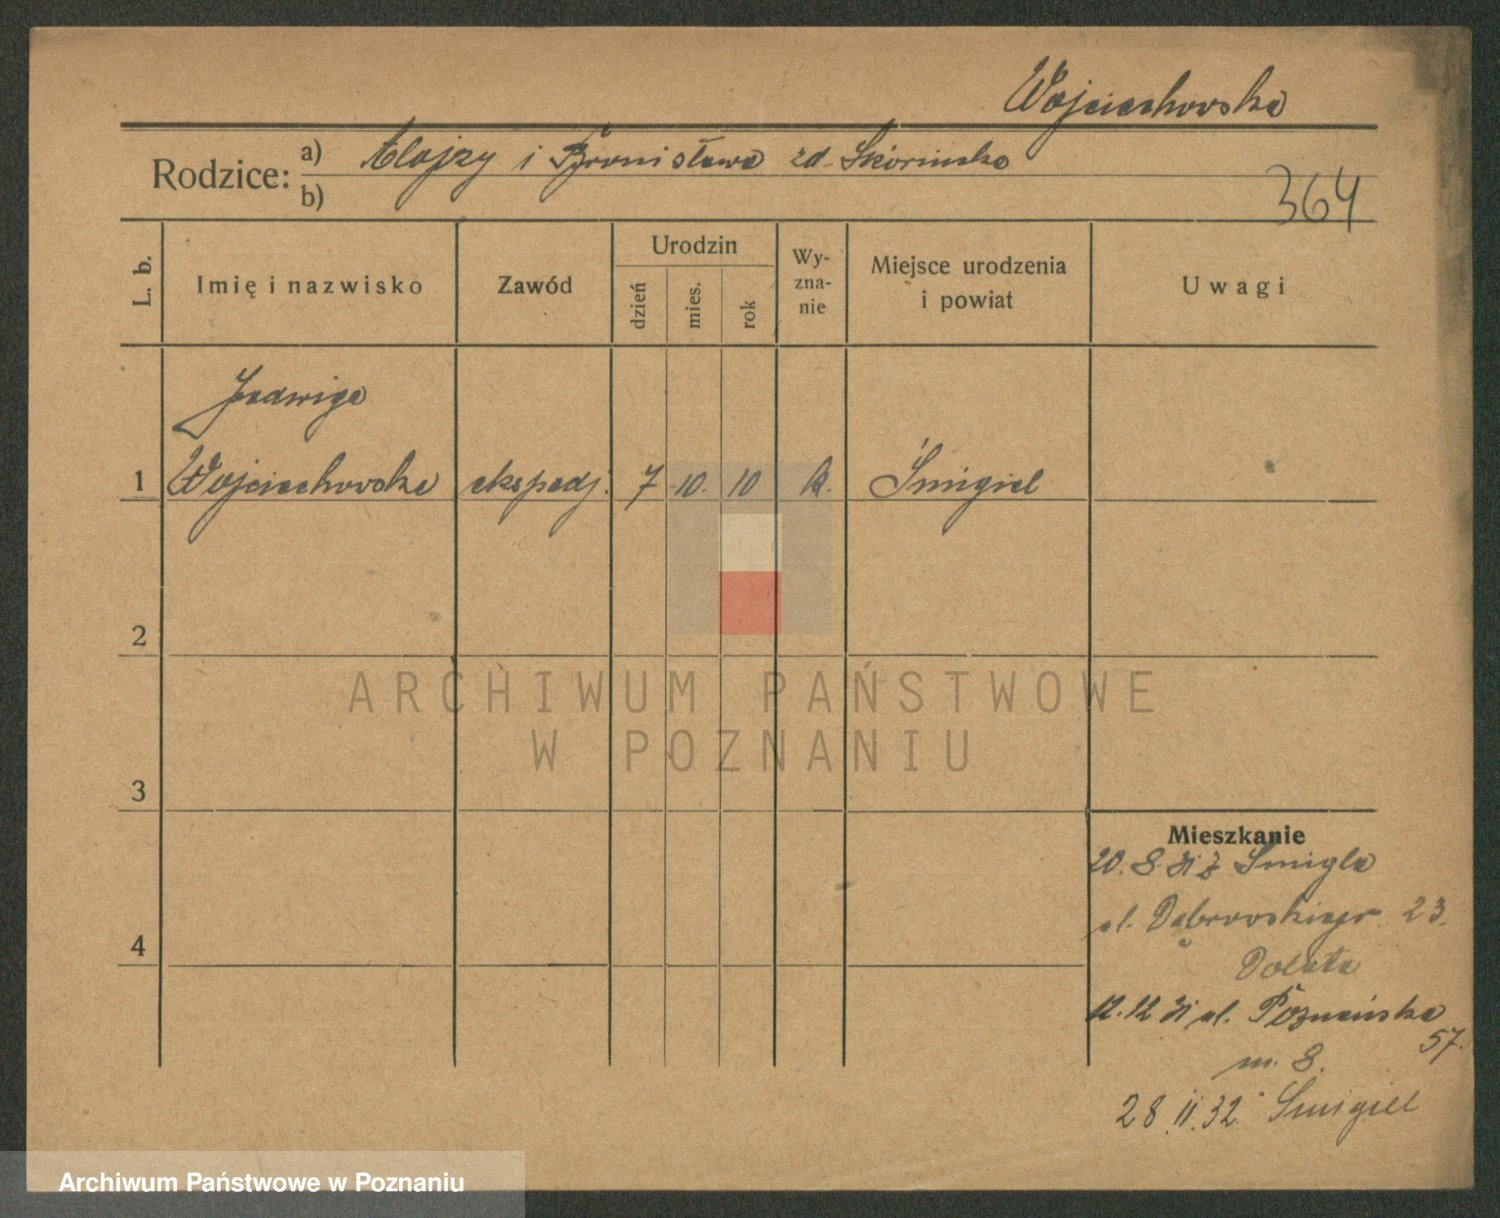 Wojciechowska
Rodzice: a) Alojzy i Bronisława zd. Skórińska
b)
364
L. b.
Imię i nazwisko
Zawód
Urodzin
dzień
mies.
rok
Wy-
zna-
nie
Miejsce urodzenia
i powiat
Uwagi
Jadwiga
1 Wojciechowska ekspedj. 7 10. 10 k. Śmigiel
2
3
4
Mieszkanie
20. 8. 31 z Śmigla
ul. Dąbrowskiego 23.
Dolata
12. 12 31 ul. Poznańska
57.
m. 8.
28. II. 32. Śmigiel
ARCHIWUM PAŃSTWOWE
W POZNANIU
Archiwum Państwowe w Poznaniu